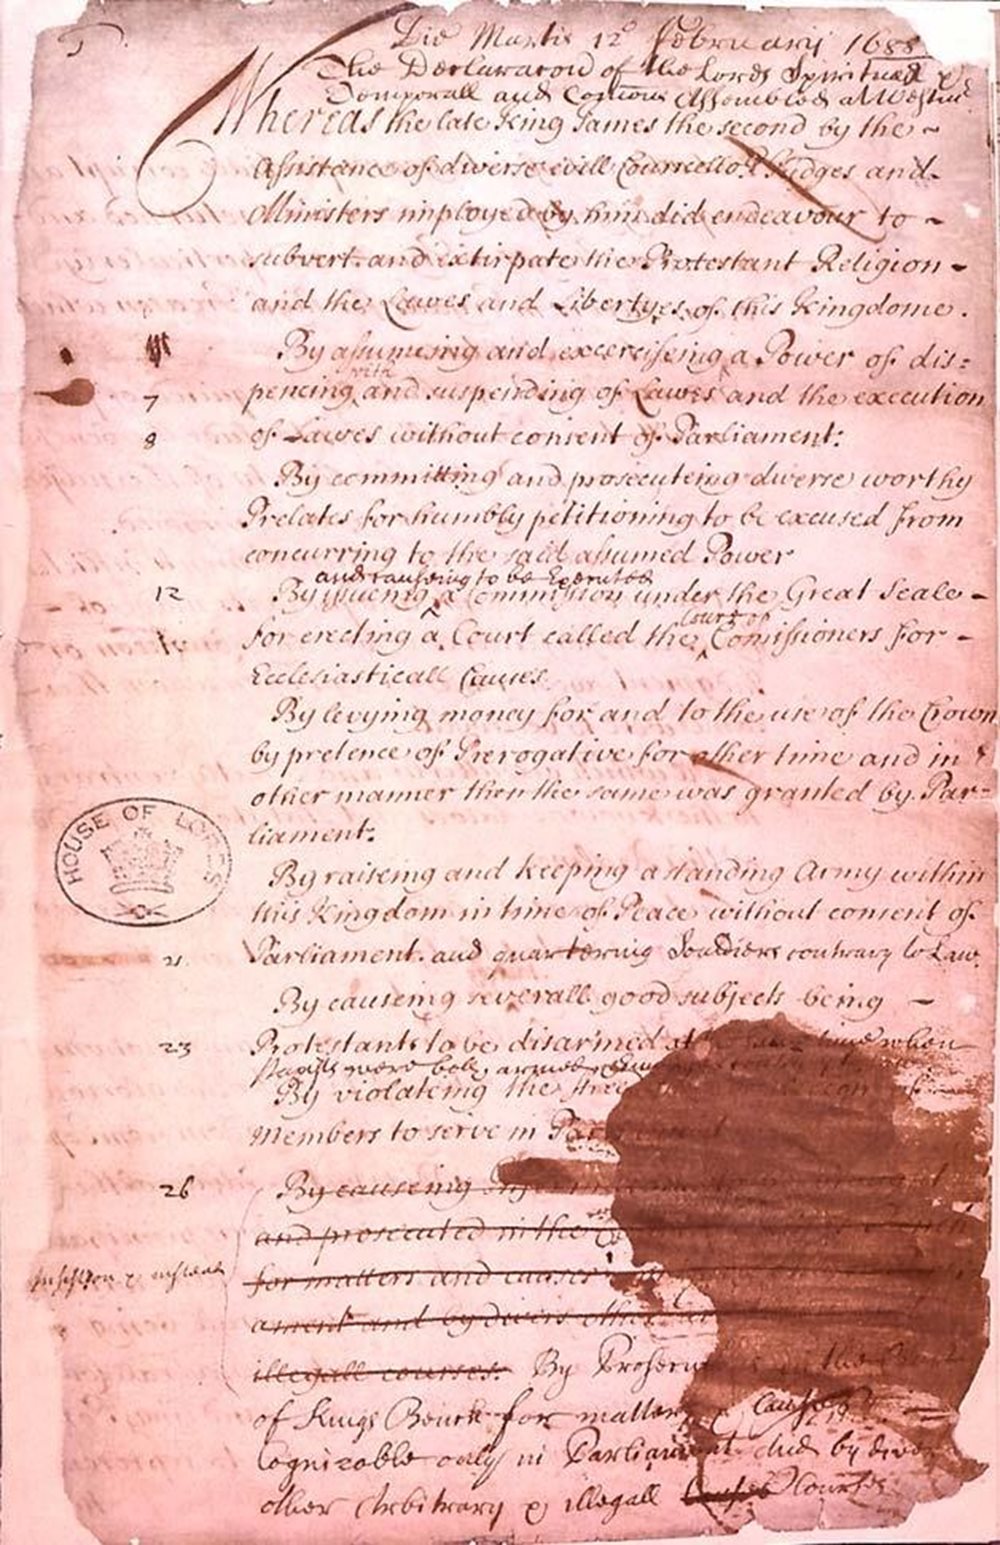 Die Martis 12º February 1688
The Declaration of the Lords Spirituall &
Temporall and Comons Assembled at Westmr
Whereas the late King James the second by the
Assistance of diverse evill Councello.rs Judges and
Ministers imployed by him did endeavour to
subvert and extirpate the Protestant Religion
and the Lawes and Libertyes of this Kingdome.
By assumeing and excercisseing a Power of dis=
with
7 pencing and suspending of Lawes and the execution
8 of Lawes without consent of Parliament:
By committing and prosecuteing diverse worthy
Prelates for humbly petitioning to be excused from
concurring to the said assumed Power
and causeing to be Executed
12 By issueing a Commission under the Great Seale
Court of
for erecting a Court called the Comissioners for
Ecclesiasticall Causes
By levying money for and to the use of the Crown
by pretence of Prerogative for other time and in
other manner then the same was granted by Par=
liament:
HOUSE OF LORDS
By raiseing and keeping a standing Army within
this Kingdom in time of Peace without consent of
21. Parliament. and quartering Souldiers contrary to Law.
By causeing severall good subjects being
23 Protestants to be disarmed at time when
Papists were both armed
By violateing the
members to serve in
26 By causeing
and prosecuted in the
for matters and causes
ament and by divers other
illegall courses. By the
of Kings Bench for matters & Causes
Cognizable only in Parliament and by divers
other Arbitrary & illegall Causes Courses